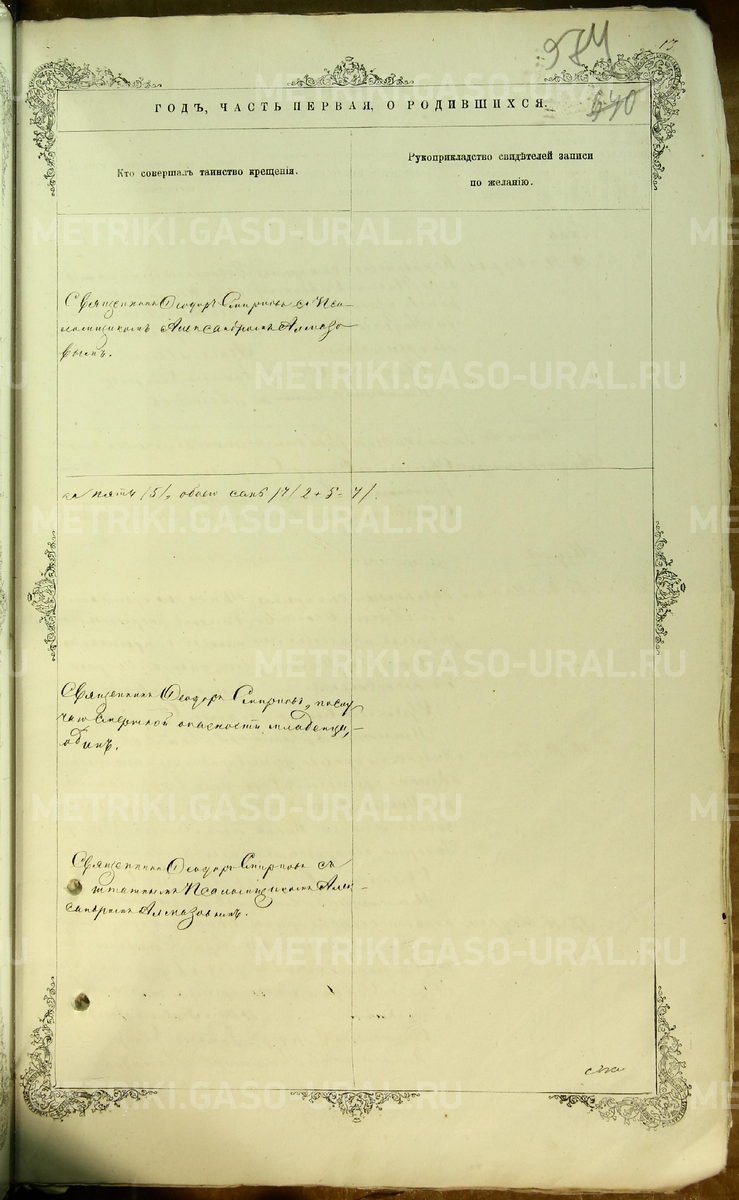 17.
974
440
ГОДЪ, ЧАСТЬ ПЕРВАЯ, О РОДИВШИХСЯ.
Кто совершалъ таинство крещенія.
Рукоприкладство свидѣтелей записи
по желанію.
Священникъ Ѳеодоръ Смирновъ съ Пса-
ломщикомъ Александромъ Алмазо
вымъ.
пять /5/, обоего семь /7/ 2 + 5 = 7/.
Священникъ Ѳеодоръ Смирновъ, по слу
чаю смертной опасности младенца,
одинъ.
Священникъ Ѳеодоръ Смирновъ съ
штатнымъ Псаломщикомъ Алек-
сандромъ Алмазовымъ.
METRIKI.GASO-URAL.RU